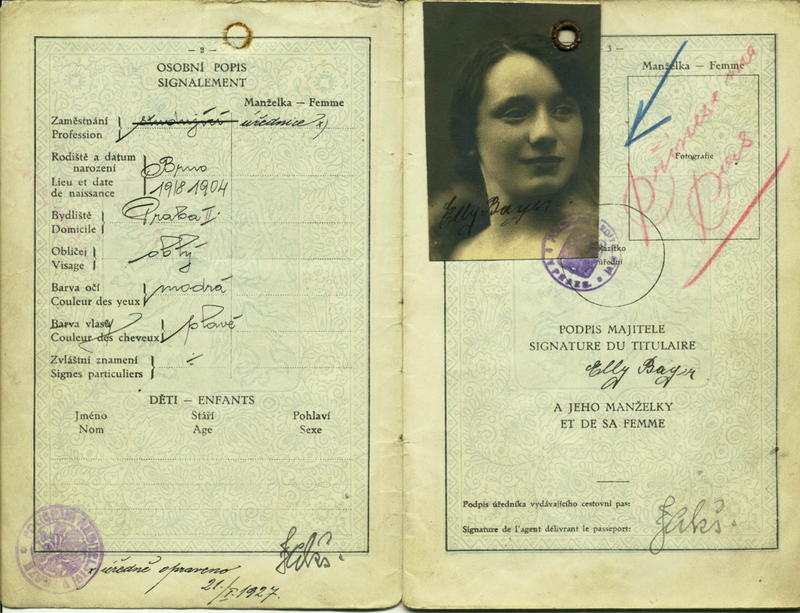 — 2 —
OSOBNÍ POPIS
SIGNALEMENT
Manželka — Femme
Zaměstnání
Profession
úřednice x)
Rodiště a datum narození
Lieu et date de naissance
Brno
19/8 1904
Bydliště
Domicile
Praha II.
Obličej
Visage
oblý
Barva očí
Couleur des yeux
modrá
Barva vlasů
Couleur des cheveux
plavé
Zvláštní znamení
Signes particuliers
÷
DĚTI — ENFANTS
Jméno Stáří Pohlaví
Nom Age Sexe
x úředně opraveno
21./I. 1927.
3 —
Manželka — Femme
Fotografie
Elly Bayer
PODPIS MAJITELE
SIGNATURE DU TITULAIRE
Elly Bayer
A JEHO MANŽELKY
ET DE SA FEMME
Podpis úředníka vydávajícího cestovní pas:
Signature de l'agent délivrant le passeport: